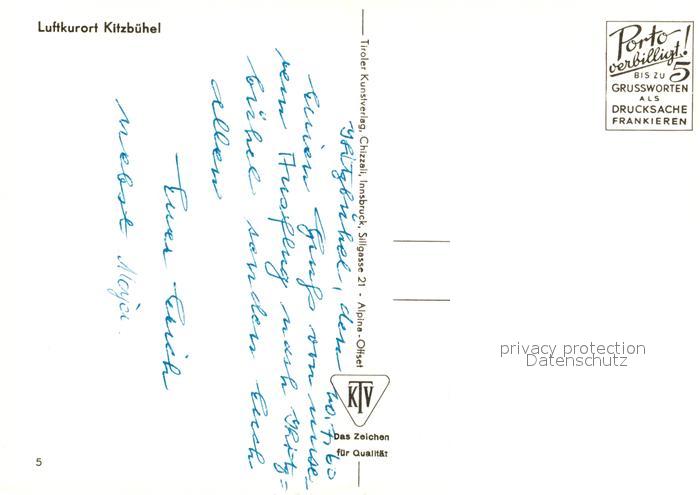 Luftkurort Kitzbühel
Kitzbühel, den 20.7.60
Einen Gruß von unse=
rem Ausflug nach Kitz=
bühel senden Euch
Allen
Euer Erich
nebst Maja.
Tiroler Kunstverlag, Chizzali, Innsbruck, Sillgasse 21 - Alpina-Offset
KTV
Das Zeichen
für Qualität
Porto
verbilligt!
BIS ZU 5
GRUSSWORTEN
ALS
DRUCKSACHE
FRANKIEREN
privacy protection
Datenschutz
5